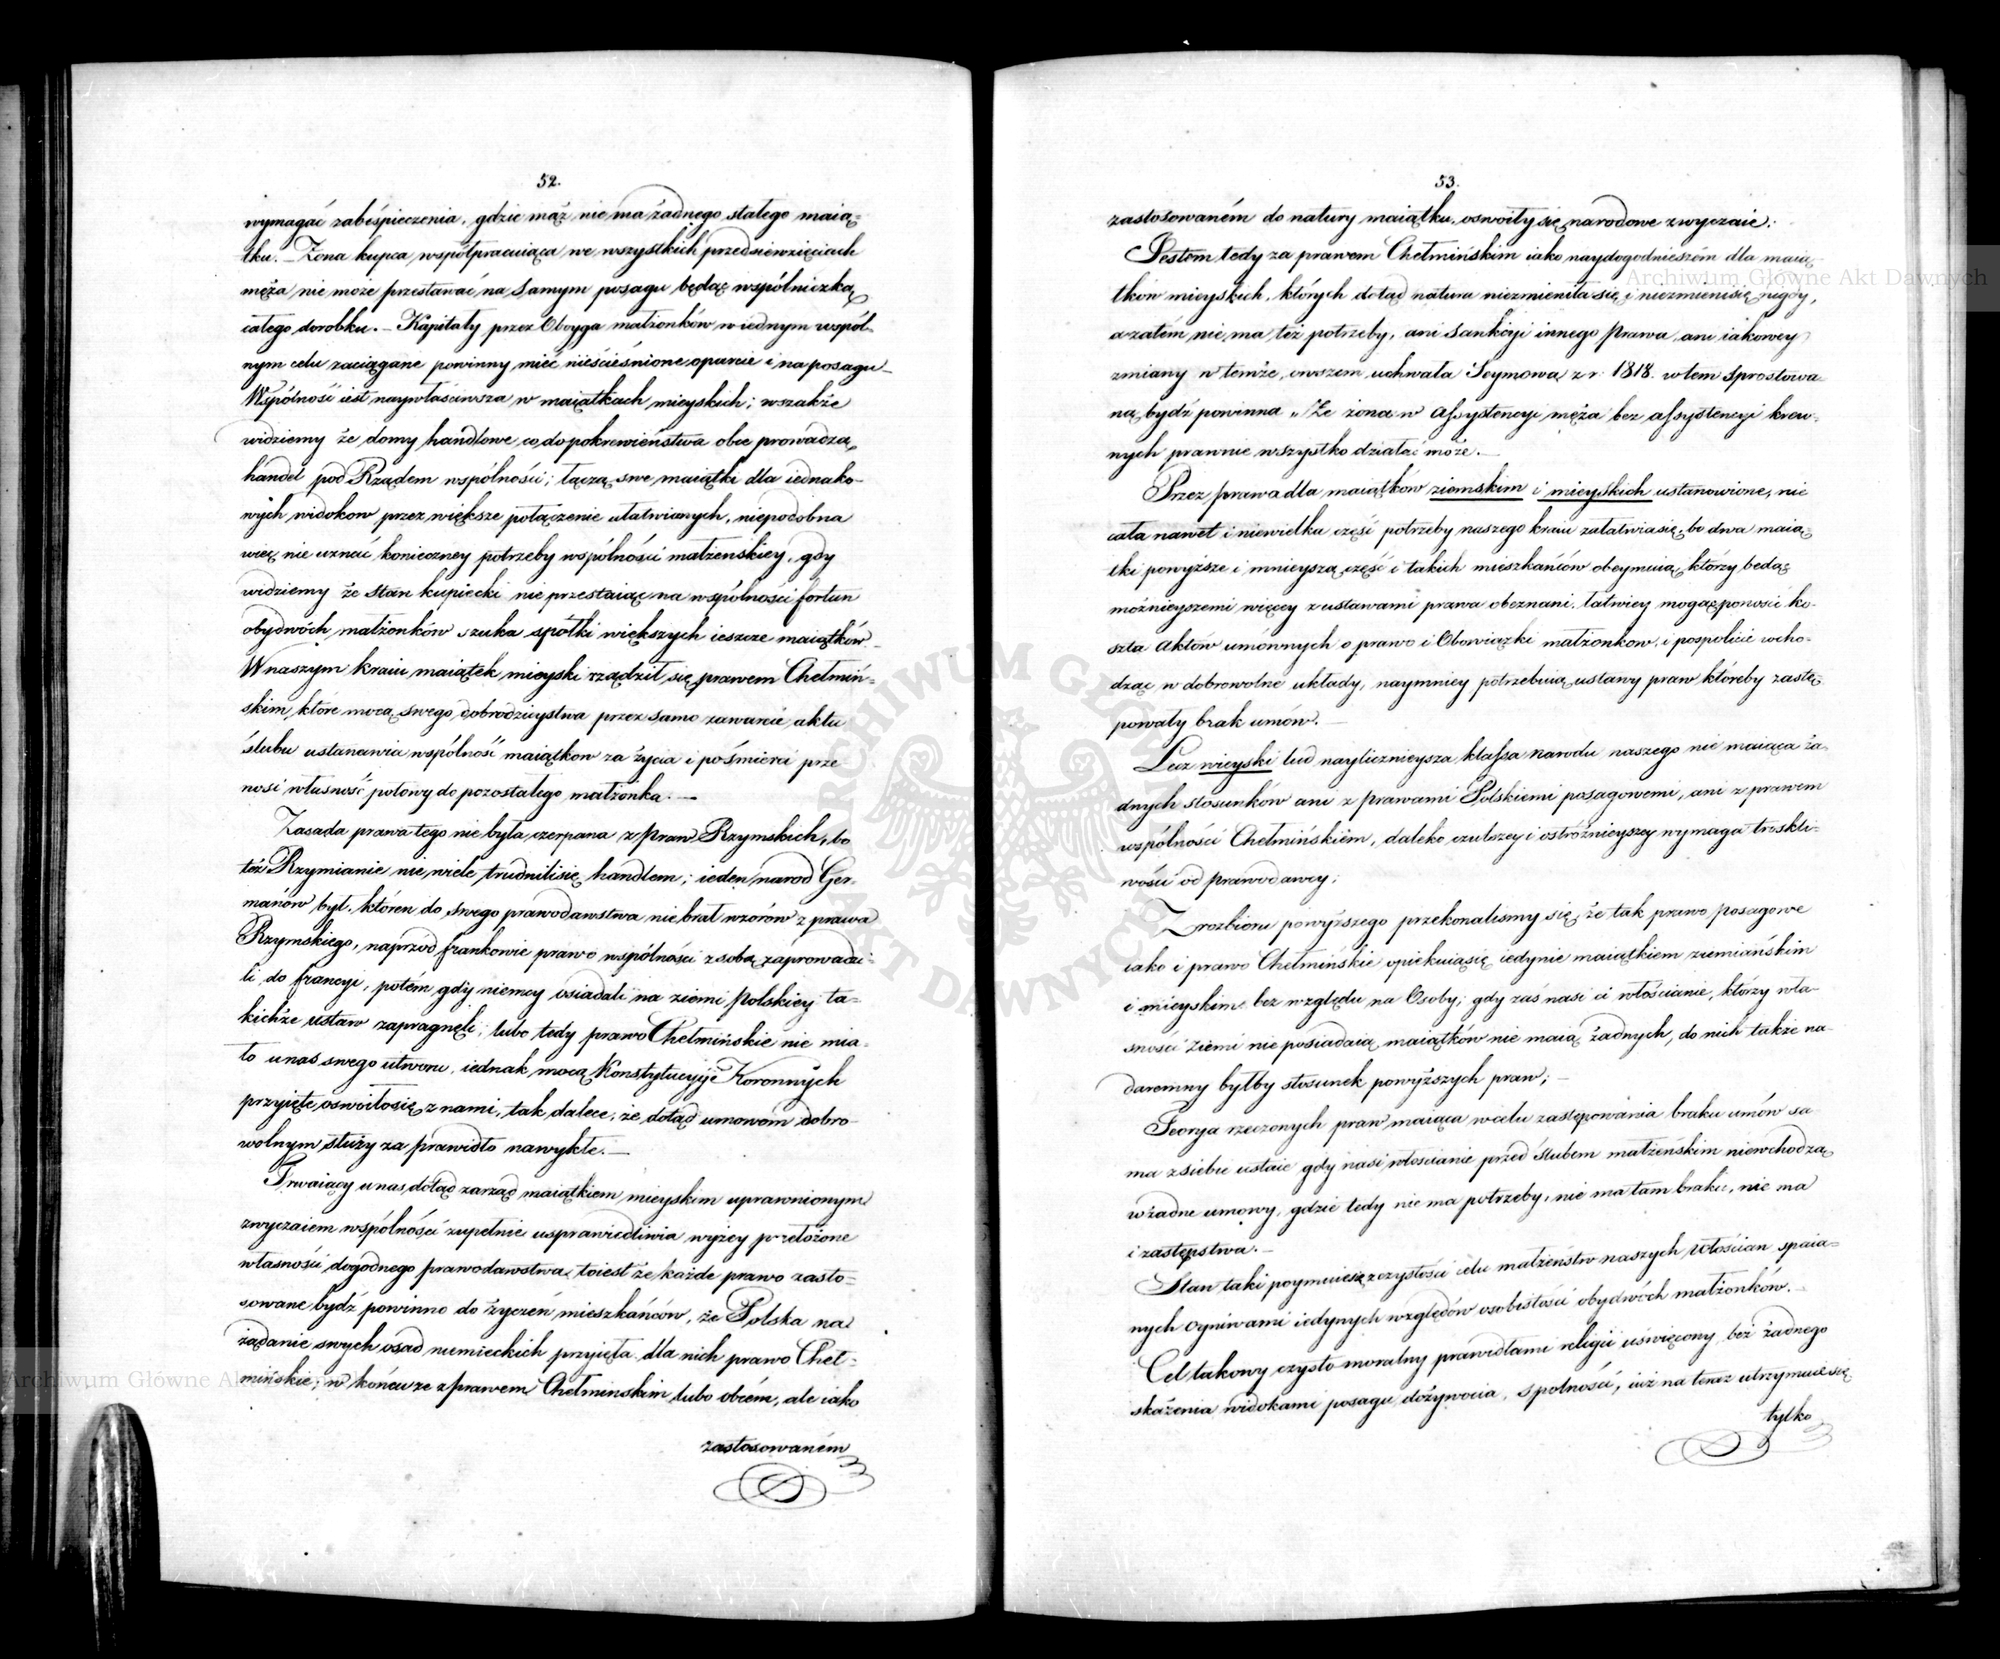 52.
wymagać zabeśpieczenia, gdzie mąż nie ma żadnego stałego maią=
tku. – Żona kupca współpracuiąca we wszystkich przedsiewzięciach
męża, nie może przestawać na samym posagu będąc wspólniczką
całego dorobku. – Kapitały przez Oboyga małżonków w iednym wspól-
nym celu zaciągane powinny mieć nieścieśnione oparcie i na posagu –
Wspólność iest naywłaściwsza w maiątkach mieyskich; wszakże
widziemy że domy handlowe co do pokrewieństwa obce prowadzą
handel pod Rządem wspólności; łączą swe maiątki dla iednako-
wych widokow przez większe połączenie ułatwianych, niepodobna
więc nie uznać konieczney potrzeby wspólności małżenskiey, gdy
widziemy że stan kupiecki nie przestaiąc na wspólności fortun
obydwóch małżonków szuka spółki większych ieszcze maiątków –
W naszym kraiu maiątek mieyski rządził się prawem Chełmiń=
skim, które mocą swego dobrodzieystwa przez samo zawarcie aktu
ślubu ustanawia wspólność maiątkow za życia i po śmierci prze
nosi własność połowy do pozostałego małżonka. –
Zasada prawa tego nie była czerpana z praw Rzymskich, bo
też Rzymianie nie wiele trudnili się handlem; ieden narod Ger-
manów był, któren do swego prawodawstwa nie brał wzorów z prawa
Rzymskiego, naprzód frankowie prawo wspólności z sobą zaprowadzi-
li do francyi, potém gdy niemcy osiadali na ziemi polskiey ta-
kichże ustaw zapragnęli; lubo tedy prawo Chełmińskie nie mia-
ło u nas swego utworu, iednak mocą Konstytucyje Koronnych
przyięte oswoiło się z nami, tak dalece, że dotąd umowom dobro-
wolnym służy za prawidło nawykłe. –
Trwaiący u nas dotąd zarząd maiątkiem mieyskim uprawnionym
zwyczaiem wspólności zupełnie usprawiedliwia wyżey przełożone
własności dogodnego prawodawstwa, to iest że każde prawo zasto=
sowane bydź powinno do życzeń mieszkańców, że Polska na
żądanie swych osad niemieckich przyięła dla nich prawo Cheł=
mińskie; w końcu że z prawem Chełminskim lubo obcém, ale iako
zastosowaném
53.
zastosowaném do natury maiątku, oswoiły się narodowe zwyczaie.
Jestem tedy za prawem Chełmińskim iako naydogodnieszém dla maią-
tków mieyskich, których dotąd natura niezmieniła się i niezmieni się nigdy,
a zatém nie ma też potrzeby, ani sankcyi innego prawa, ani iakowey
zmiany w temże, owszem uchwała Seymowa z r. 1818. w tem sprostowa-
ną bydź powinna „Że żona w assystencyi męża bez assystencyi krew-
nych prawnie wszystko działać może. –
Przez prawa dla maiątków ziemskim i mieyskich ustanowione, nie
cała nawet i niewielka część potrzeby naszego kraiu załatwia się, bo dwa maią-
tki powyższe i mnieyszą część i takich mieszkańców obeymuią, którzy będąc
możnieyszemi więcey z ustawami prawa obeznani, łatwiey mogąc ponosić ko-
szta Aktów umównych o prawo i Obowiązki małżonkow, i pospolicie wcho-
dząc w dobrowolne układy, naymniey potrzebuią ustawy praw któreby zastę-
powały brak umów. –
Lecz wieyski lud naylicznieysza klassa narodu naszego nie maiąca ża-
dnych stosunków ani z prawami Polskiemi posagowemi, ani z prawem
wspólności Chełmińskiém, daleko czulszey i ostróżnieyszey wymaga troskli-
wości od prawodawcy;
Z rozbioru powyższego przekonaliśmy się, że tak prawo posagowe
iako i prawo Chełmińskie opiekuią się iedynie maiątkiem ziemiańskim
i mieyskim bez względu na Osoby; gdy zaś nasi ci włościanie, którzy wła-
sności ziemi nie posiadaią, maiątków nie maią żadnych, do nich także na-
daremny byłby stosunek powyższych praw; –
Teorya rzeczonych praw maiąca w celu zastępowania braku umów sa-
ma z siebie ustaie gdy nasi włościanie przed ślubem małżeńskim niewchodzą
w żadne umowy, gdzie tedy nie ma potrzeby, nie ma tam braku, nie ma
i zastępstwa. –
Stan taki poymuie się z czystości celu małżeństw naszych Włościan spaia-
nych ogniwami iedynych względów osobistości obydwóch małżonków. –
Cel takowy czysto moralny prawidłami religii uświęcony, bez żadnego
skażenia widokami posagu, dożywocia, spolności, iuż na teraz utrzymuie się
tylko
Archiwum Główne Akt Dawnych
Archiwum Główne Ak
ARCHIWUM GŁ
AKT DAWNYCH